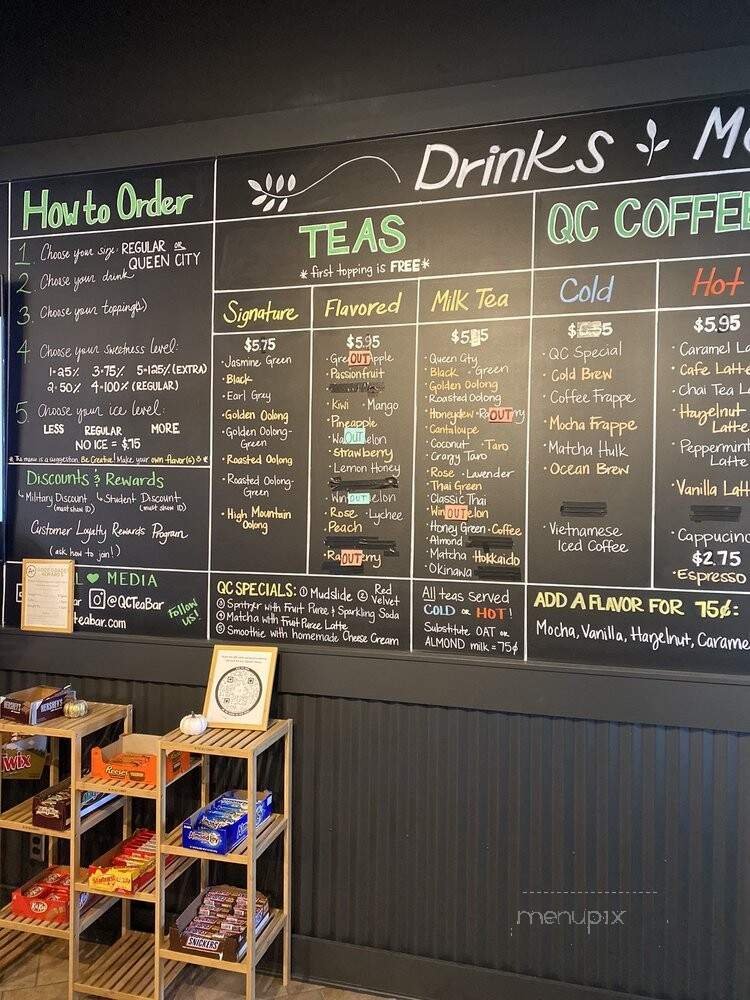 Drinks
How to Order
1. Choose your size: REGULAR or QUEEN CITY
2. Choose your drink
3. Choose your topping(s)
4. Choose your sweetness level:
1=25% 3=75% 5=125% (EXTRA)
2=50% 4=100% (REGULAR)
5. Choose your ice level:
LESS REGULAR MORE
NO ICE = $75
* The menu is a suggestion. Be Creative! Make your own flavor(s) *
Discounts & Rewards
Military Discount (must show ID)
Student Discount (must show ID)
Customer Loyalty Rewards Program
(ask how to join!)
MEDIA
@QCTeaBar
teabar.com
Follow us!
TEAS
* first topping is FREE *
Signature
$5.75
· Jasmine Green
· Black
· Earl Grey
· Golden Oolong
· Golden Oolong-Green
· Roasted Oolong
· Roasted Oolong-Green
· High Mountain Oolong
Flavored
$5.95
OUT
· Passionfruit
· Kiwi · Mango
· Pineapple
OUT
· Strawberry
· Lemon Honey
OUT
· Rose · Lychee
· Peach
OUT
Milk Tea
· Queen City
· Black · Green
· Golden Oolong
Roasted Oolong
Honeydew · OUT
· Cantaloupe
· Coconut · Taro
· Crazy Taro
· Rose · Lavender
· Thai Green
· Classic Thai
OUT
· Honey Green · Coffee
· Almond
· Matcha Hokkaido
· Okinawa
QC SPECIALS: ① Mudslide ② Red Velvet
③ Spritzer with Fruit Puree & Sparkling Soda
④ Matcha with Fruit Puree Latte
⑤ Smoothie with homemade Cheese Cream
All teas served
COLD or HOT!
Substitute OAT or
ALMOND milk = 75¢
QC COFFEE
Cold
· QC Special
· Cold Brew
· Coffee Frappe
· Mocha Frappe
· Matcha Hulk
· Ocean Brew
· Vietnamese Iced Coffee
Hot
$5.95
· Cafe Latte
· Chai Tea
· Hazelnut Latte
· Peppermint Latte
· Vanilla
· Cappuccino
$2.75
· Espresso
ADD A FLAVOR FOR 75¢:
Mocha, Vanilla, Hazelnut,
HERSHEY'S
HERSHEY'S
Reese's
SNICKERS
menupix